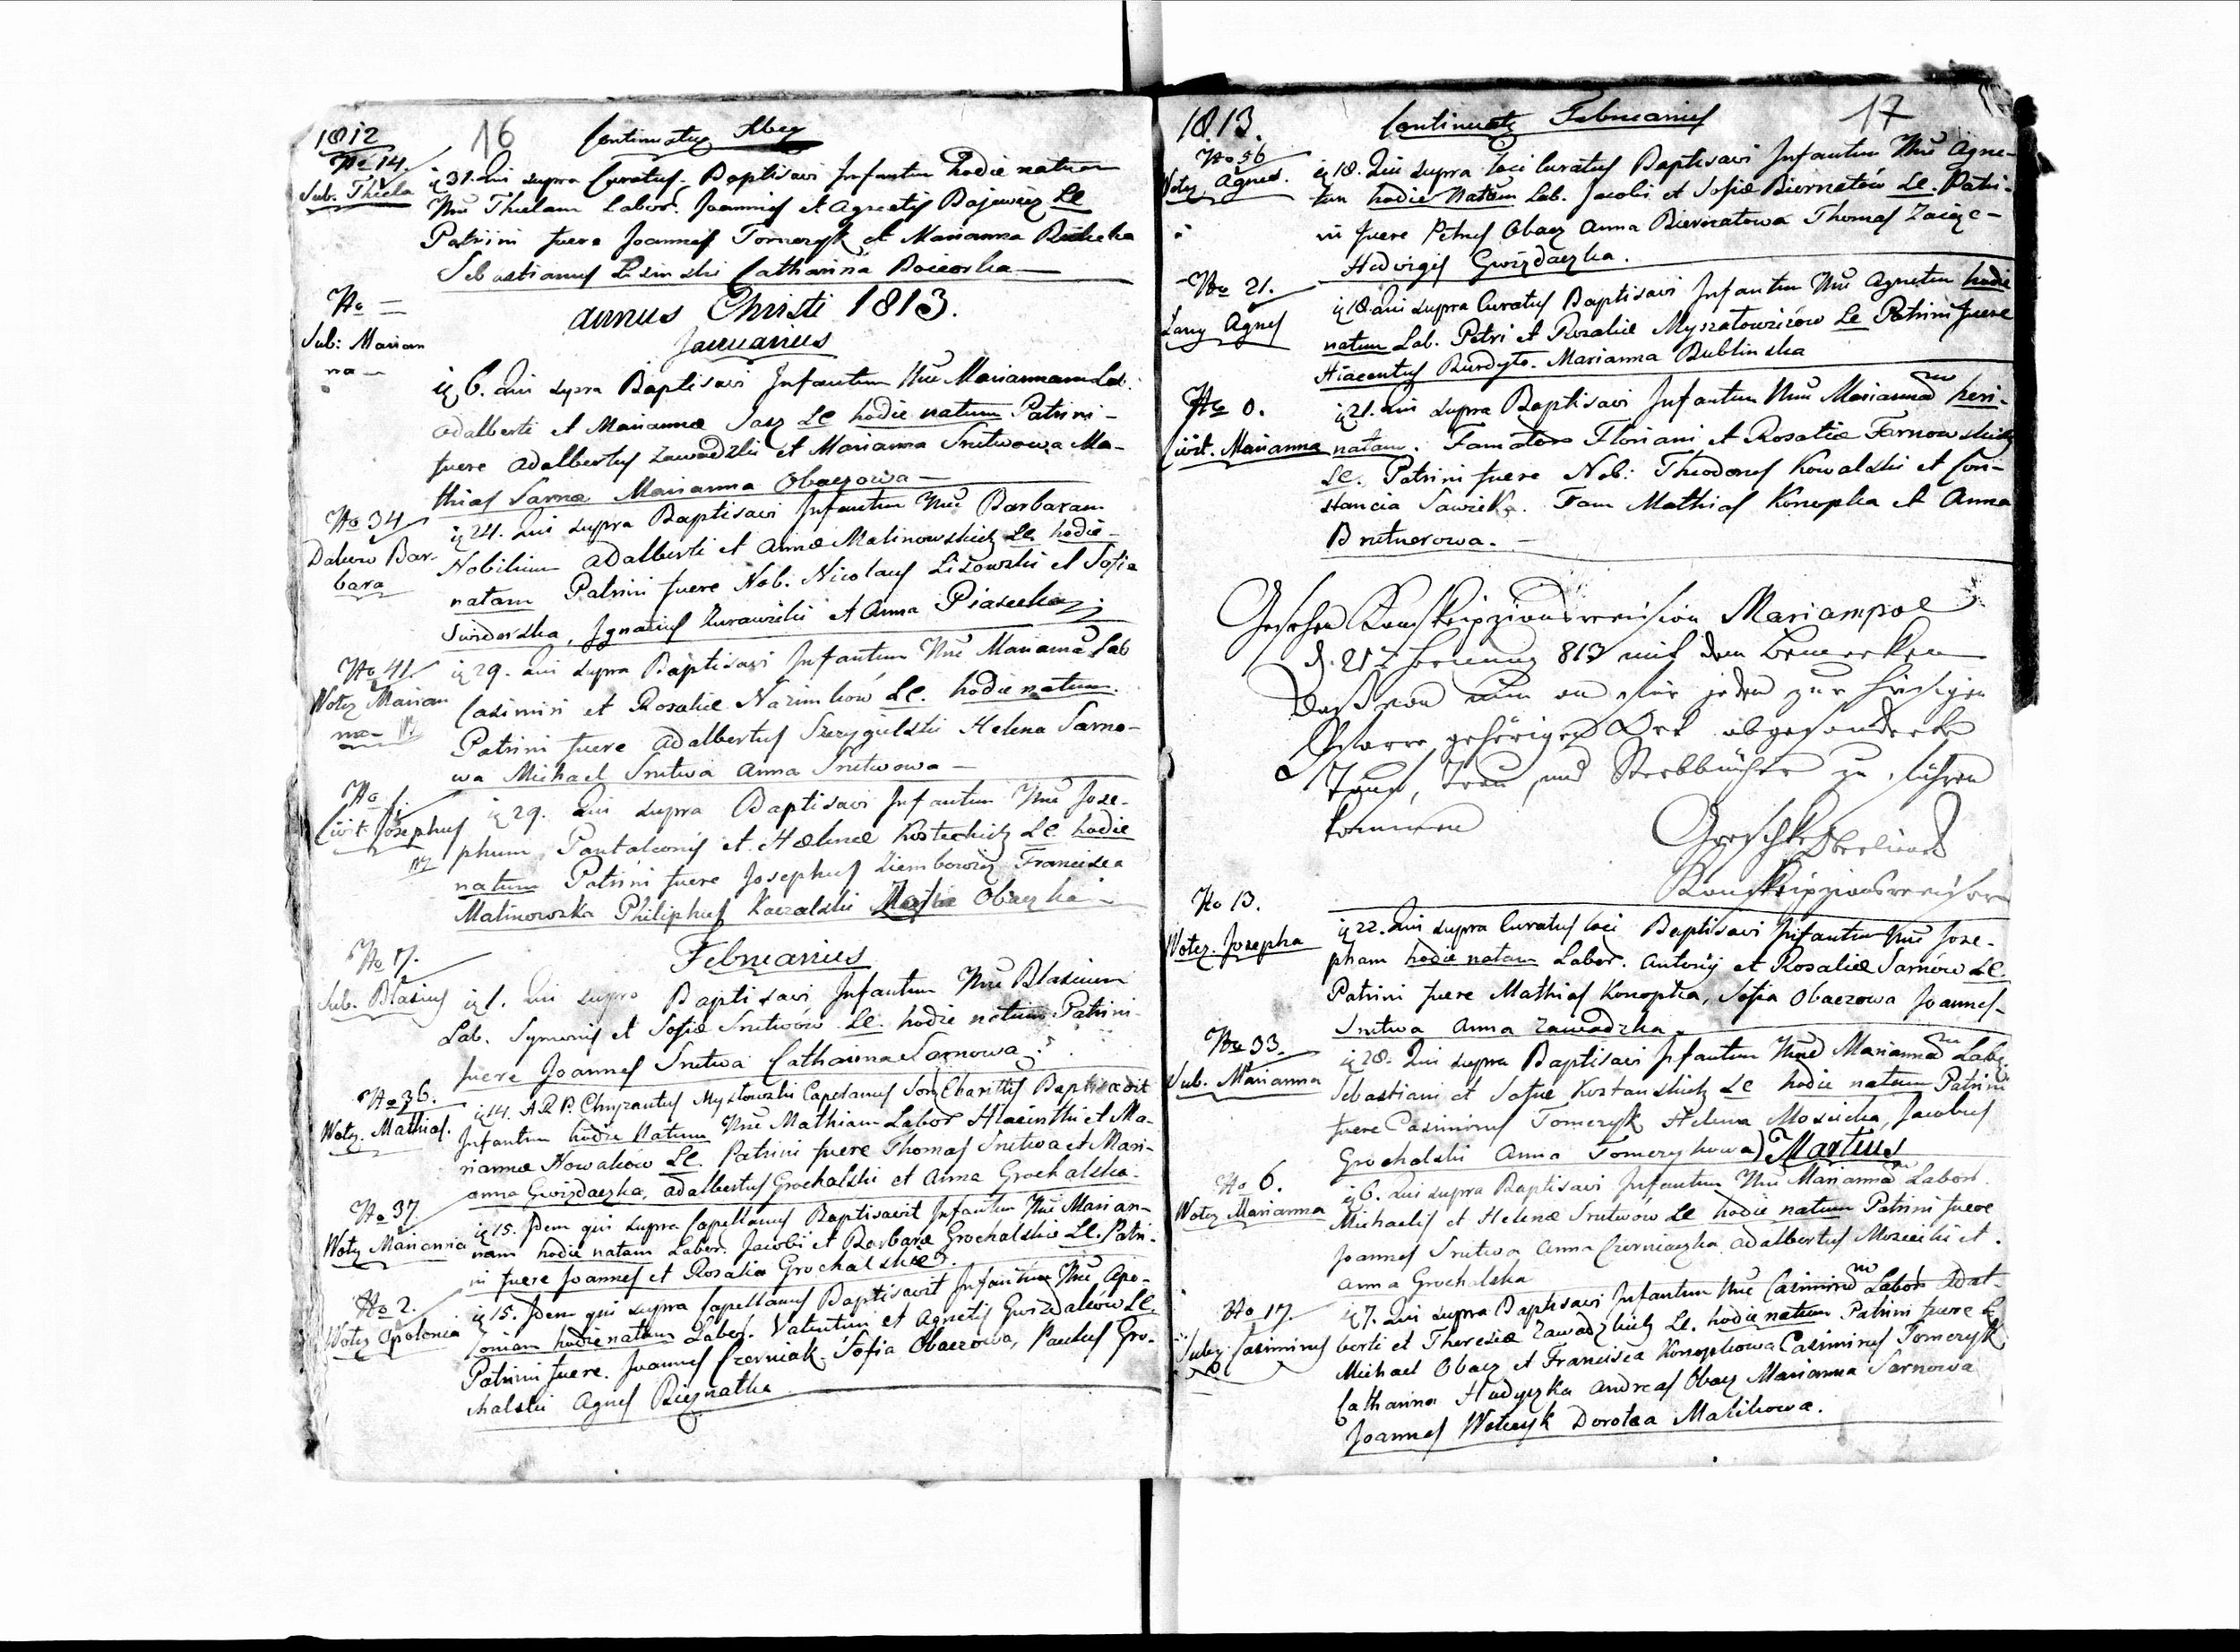 1812
16
Continuatur Xber
No 14.
Sub. Thecla
ią 31. Qui supra Curatus, Baptisavi Infantem hodie natum
Nne Theclam Labor. Joannis et Agnetis Bajewicz LC
Patrini fuere Joannes Tomczyk et Marianna
Sebastianus Catharina
No =
Sub: Marian
na
annus Christi 1813.
Januarius
ią 6. Qui supra Baptisavi Infantem Nne Mariannam Lab.
Adalberti et Marianna Sacz LC hodie natum Patrini
fuere Adalbertus Zawadzki et Marianna Snitwowa Ma-
thias Sarna Marianna Obaczowa
No 34
Dakow Bar-
bara
ią 24. Qui supra Baptisavi Infantem Nne Barbaram
Nobilium Adalberti et Annæ Malinowskich LC hodie
natam Patrini fuere Nob. Nicolaus Lisowski et Sofia
Swiderska, Ignatius Zurawski et Anna Piasecka
No 41.
Wotcz Marian
na
ią 29. Qui supra Baptisavi Infantem Nne Marianna Lab
Casimiri et Rosaliæ Nazimków LC. hodie natum.
Patrini fuere Adalbertus Szczygielski Helena Sarno-
wa Michael Snitwa Anna Snitwowa
No 1.
Josephus
ią 29. Qui supra Baptisavi Infantem Nne Jose-
phum Pantaleonis et Helenæ Kosteckich LC hodie
natum Patrini fuere Josephus Ziembowicz Francisca
Malinowska Philiphus Kaczalski Obaczka
Februarius
No 7.
Sub. Blasius
ią 1. Qui supra Baptisavi Infantem Nne Blasium
Lab. Symonis et Sofiæ Snitwów LC. hodie natum Patrini
fuere Joannes Snitwa Catharina Sarnowa
No 36.
Wotcz. Mathias.
ią 14. A.R.P. Chryzantus Mystowski Capelanus Baptisavit
Infantem hodie Natum Nne Mathiam Labor Hiacinthi et Ma-
riannæ Nowaków LC. Patrini fuere Thomas Snitwa et Mari-
anna Gwizdaczka, Adalbertus Grochalski et Anna Grochalska.
No 37.
Wotcz Marianna
ią 15. Idem qui supra Capellanus Baptisavit Infantem Nne Marian-
nam hodie natam Labor. Jacobi et Barbaræ Grochalskie LC. Patri-
ni fuere Joannes et Rosalia Grochalskie.
No 2.
Wotcz Apolonia
ią 15. Idem qui supra Capellanus Baptisavit Infantem Nne Apo-
loniam hodie natam Labor. Valentini et Agnetis Gwizdaków LC.
Patrini fuere. Joannes Czerniak. Sofia Obaczowa, Paulus Gro-
chalski Agnes Biernatka
1813.
Continuatr Februarius
17
No 56
Wotcz. Agnes.
ią 18. Qui supra loci Curatus Baptisavi Infantem Nne Agne-
tem hodie Natam Lab. Jacobi et Sofiæ Biernatów LC. Patri-
ni fuere Petrus Obacz Anna Biernatowa Thomas Zaięc-
Hedvigis Gwizdaczka.
No 21.
Lany Agnes
ią 18 Qui supra Curatus Baptisavi Infantem Nne Agnetem hodie
natum Lab. Petri et Rozaliæ LC Patrini fuere
Hiacentus Burdyło. Marianna Dublinska
No 0.
Marianna
ią 21. Qui supra Baptisavi Infantem Nne Mariannam heri-
natam. Floriani et Rosaliæ Tarnowskich
LC. Patrini fuere Nob: Theodorus Kowalski et Con-
stancia Sawicka. Fam Mathias Konopka et Anna
Brutnerowa.
Gesehen Konskripzionsrevision Mariampol
d. 21 813 mit dem Bemerken
daß von nun an für jeden zur hiesigen
Pfarre gehörigen Ort abgesonderte
Tauf, Trau und Sterbbücher zu führen
kommen
Konskripzionsrevisor
No 13.
Wotcz. Josepha
ią 22. Qui supra Curatus loci Baptisavi Infantem Nne Jose-
pham hodie natam Labor. Antonij et Rosaliæ Sarnów LC.
Patrini fuere Mathias Konopka, Sofia Obaczowa Joannes
Snitwa Anna Zawadzka.
No 33.
Sub. Marianna
ią 28. Qui supra Baptisavi Infantem Nne Mariannam Lab.
Sebastiani et Sofiæ Kostanskich LC hodie natum Patrini
fuere Casimirus Tomczyk Helena Moscicka, Jacobus
Grochalski Anna Tomczykowa) Martius
No 6.
Wotcz Marianna
ią 6. Qui supra Baptisavi Infantem Nne Mariannam Labor.
Michaelis et Helenæ Snitwów LC hodie natum Patrini fuere
Joannes Snitwa Anna Czerniaczka Adalbertus Moscicki et
Anna Grochalska
No 17.
Sub. Casimirus
ią 7. Qui supra Baptisavi Infantem Nne Casimirum Labor. Adal-
berti et Theresiæ Zawadzkich LC. hodie natum Patrini fuere
Michael Obacz et Francisca Konopkowa Casimirus Tomczyk
Catharina Hudyczka Andreas Obacz Marianna Sarnowa
Joannes Wotczyk Dorotea Malikowa.